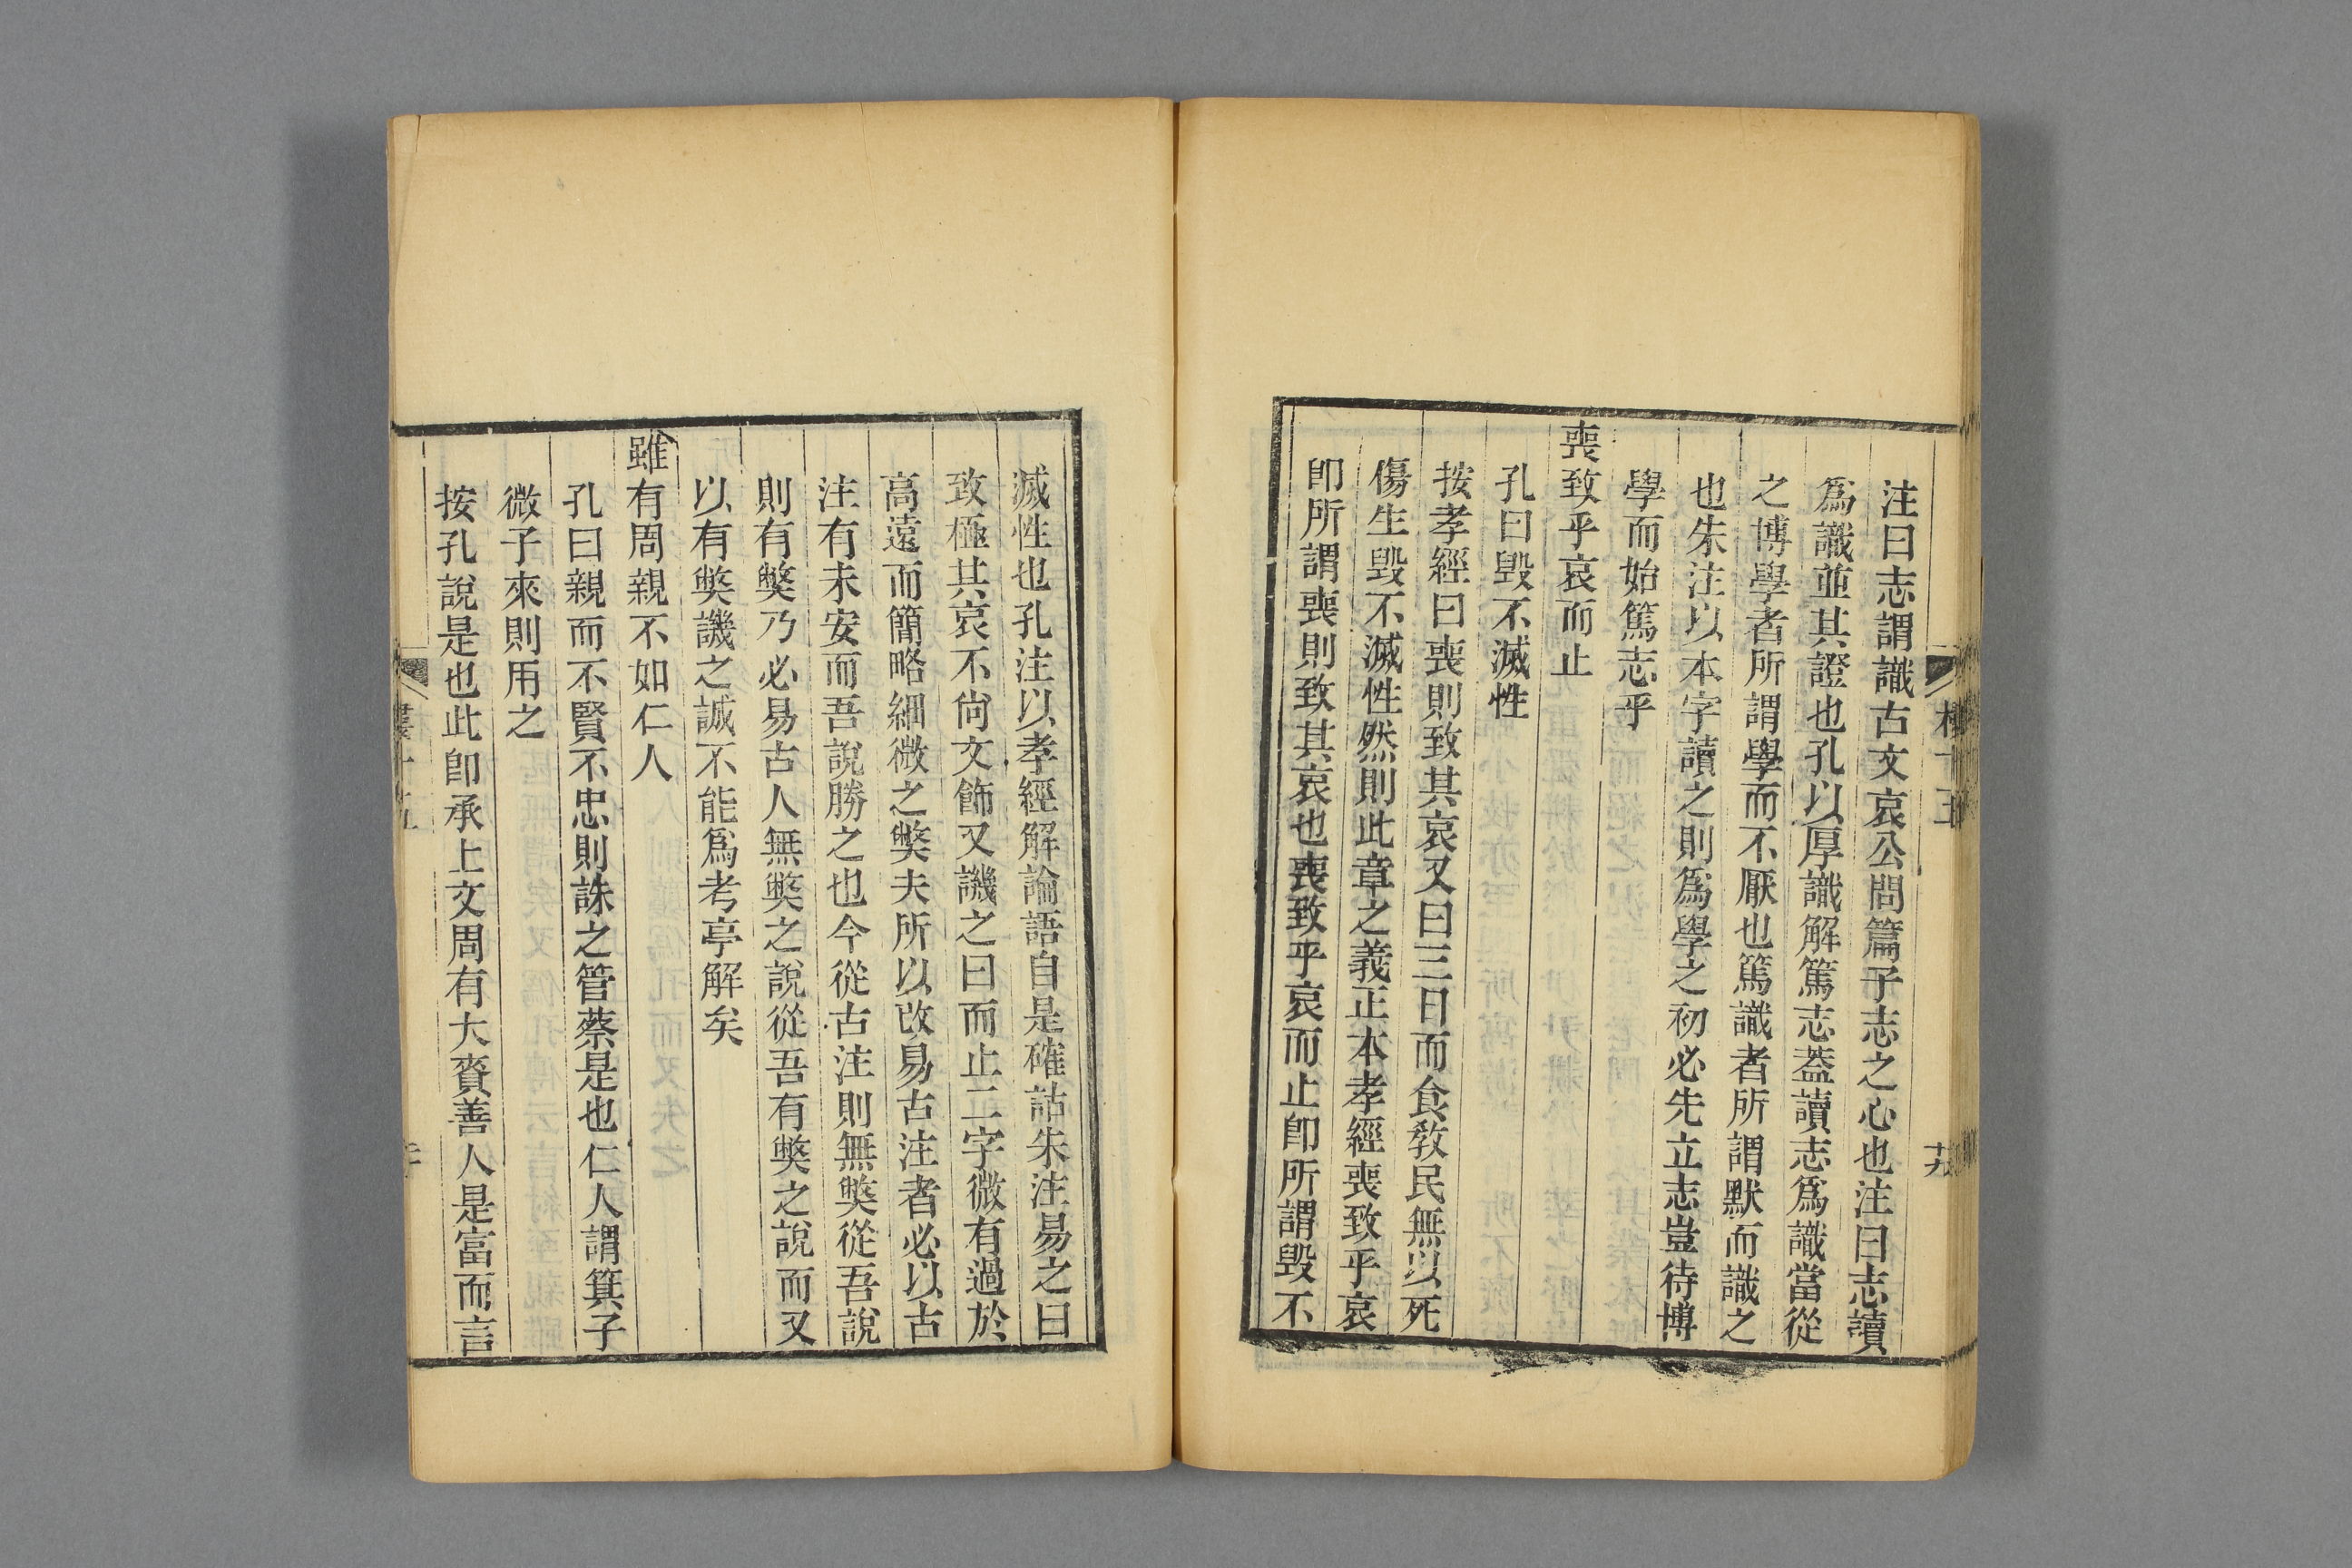 注曰志謂識古文哀公問篇子志之心也注曰志讀
爲識並其證也孔以厚識解篤志葢讀志爲識當從
之博學者所謂學而不厭也篤識者所謂默而識之
也朱注以本字讀之則爲學之初必先立志豈待博
學而始篤志乎
喪致乎哀而止
孔曰毀不滅性
按孝經曰喪則致其哀又曰三日而食敎民無以死
傷生毀不滅性然則此章之義正本孝經喪致乎哀
卽所謂喪則致其哀也喪致乎哀而止卽所謂毀不
滅性也孔注以孝經解論語自是確詁朱注易之曰
致極其哀不尙文飾又譏之曰而止二字微有過於
高遠而簡略細微之獘夫所以改易古注者必以古
注有未安而吾說勝之也今從古注則無獘從吾說
則有獘乃必易古人無獘之說從吾有獘之說而又
以有獘譏之誠不能爲考亭解矣
雖有周親不如仁人
孔曰親而不賢不忠則誅之管蔡是也仁人謂箕子
微子來則用之
按孔說是也此卽承上文周有大賚善人是富而言